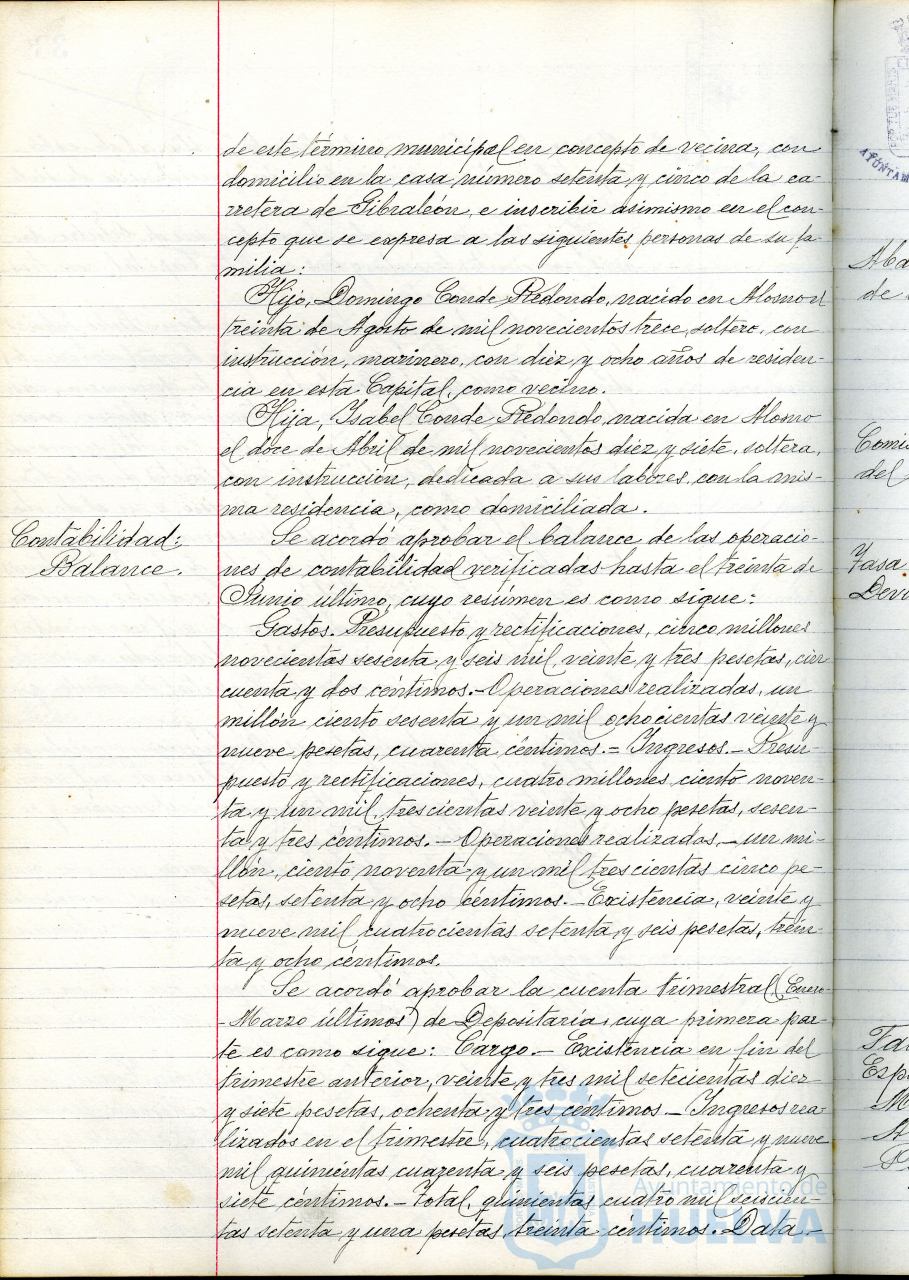 de este término municipal en concepto de vecina, con
domicilio en la casa número setenta y cinco de la ca-
rretera de Gibraleón, e inscribir asimismo en el con-
cepto que se expresa a las siguientes personas de su fa-
milia:
Hijo, Domingo Conde Redondo, nacido en Alosno el
treinta de Agosto de mil novecientos trece, soltero, con
instrucción, marinero, con diez y ocho años de residen-
cia en esta Capital, como vecino.
Hija, Isabel Conde Redondo, nacida en Alosno
el doce de Abril de mil novecientos diez y siete, soltera,
con instrucción, dedicada a sus labores, con la mis-
ma residencia, como domiciliada.
Contabilidad:
Balance.
Se acordó aprobar el balance de las operacio-
nes de contabilidad verificadas hasta el treinta de
Junio último, cuyo resúmen es como sigue:
Gastos. Presupuesto y rectificaciones, cinco millones
novecientas sesenta y seis mil, veinte y tres pesetas, cin
cuenta y dos céntimos.- Operaciones realizadas, un
millón ciento sesenta y un mil ochocientas veinte y
nueve pesetas, cuarenta céntimos.= Ingresos.- Presu-
puesto y rectificaciones, cuatro millones ciento noven-
ta y un mil, trescientas veinte y ocho pesetas, sesen-
ta y tres céntimos.- Operaciones realizadas,- un mi-
llón, ciento noventa y un mil trescientas cinco pe-
setas, setenta y ocho céntimos.- Existencia, veinte y
nueve mil cuatrocientas setenta y seis pesetas, trein-
ta y ocho céntimos.
Se acordó aprobar la cuenta trimestral (Enero-
-Marzo últimos) de Depositaría, cuya primera par-
te es como sigue: Cargo.- Existencia en fin del
trimestre anterior, veinte y tres mil setecientas diez
y siete pesetas, ochenta y tres céntimos - Ingresos rea-
lizados en el trimestre, cuatrocientas setenta y nueve
mil quinientas cuarenta y seis pesetas, cuarenta y
siete céntimos.- Total, quinientas cuatro mil seiscien-
tas setenta y una pesetas, treinta céntimos. Data.-
Ayuntamiento de
HUELVA
de
Comi
del
Tasa
Esp